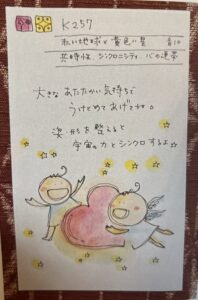 K257
赤い地球と黄色い星 音10
共時性 シンクロニシティ 心の連帯
大きな あたたかい気持ちで
うけとめてあげてネ。
姿形を整えると
宇宙の力とシンクロするよ